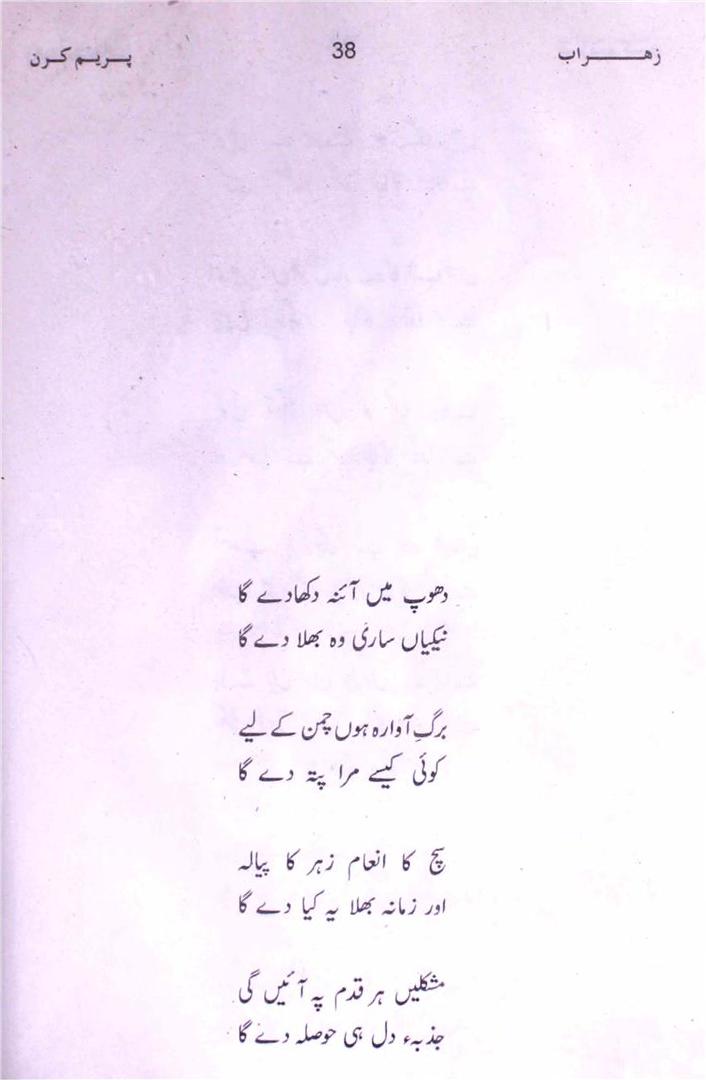 زهـــراب 38 پـريـم كـرن
دھوپ میں آئنہ دکھادے گا
نیکیاں ساری وہ بھلا دے گا
برگِ آوارہ ہوں چمن کے لیے
کوئی کیسے مرا پتہ دے گا
سچ کا انعام زہر کا پیالہ
اور زمانہ بھلا یہ کیا دے گا
مشکلیں ہر قدم پہ آئیں گی
جذبہء دل ہی حوصلہ دے گا